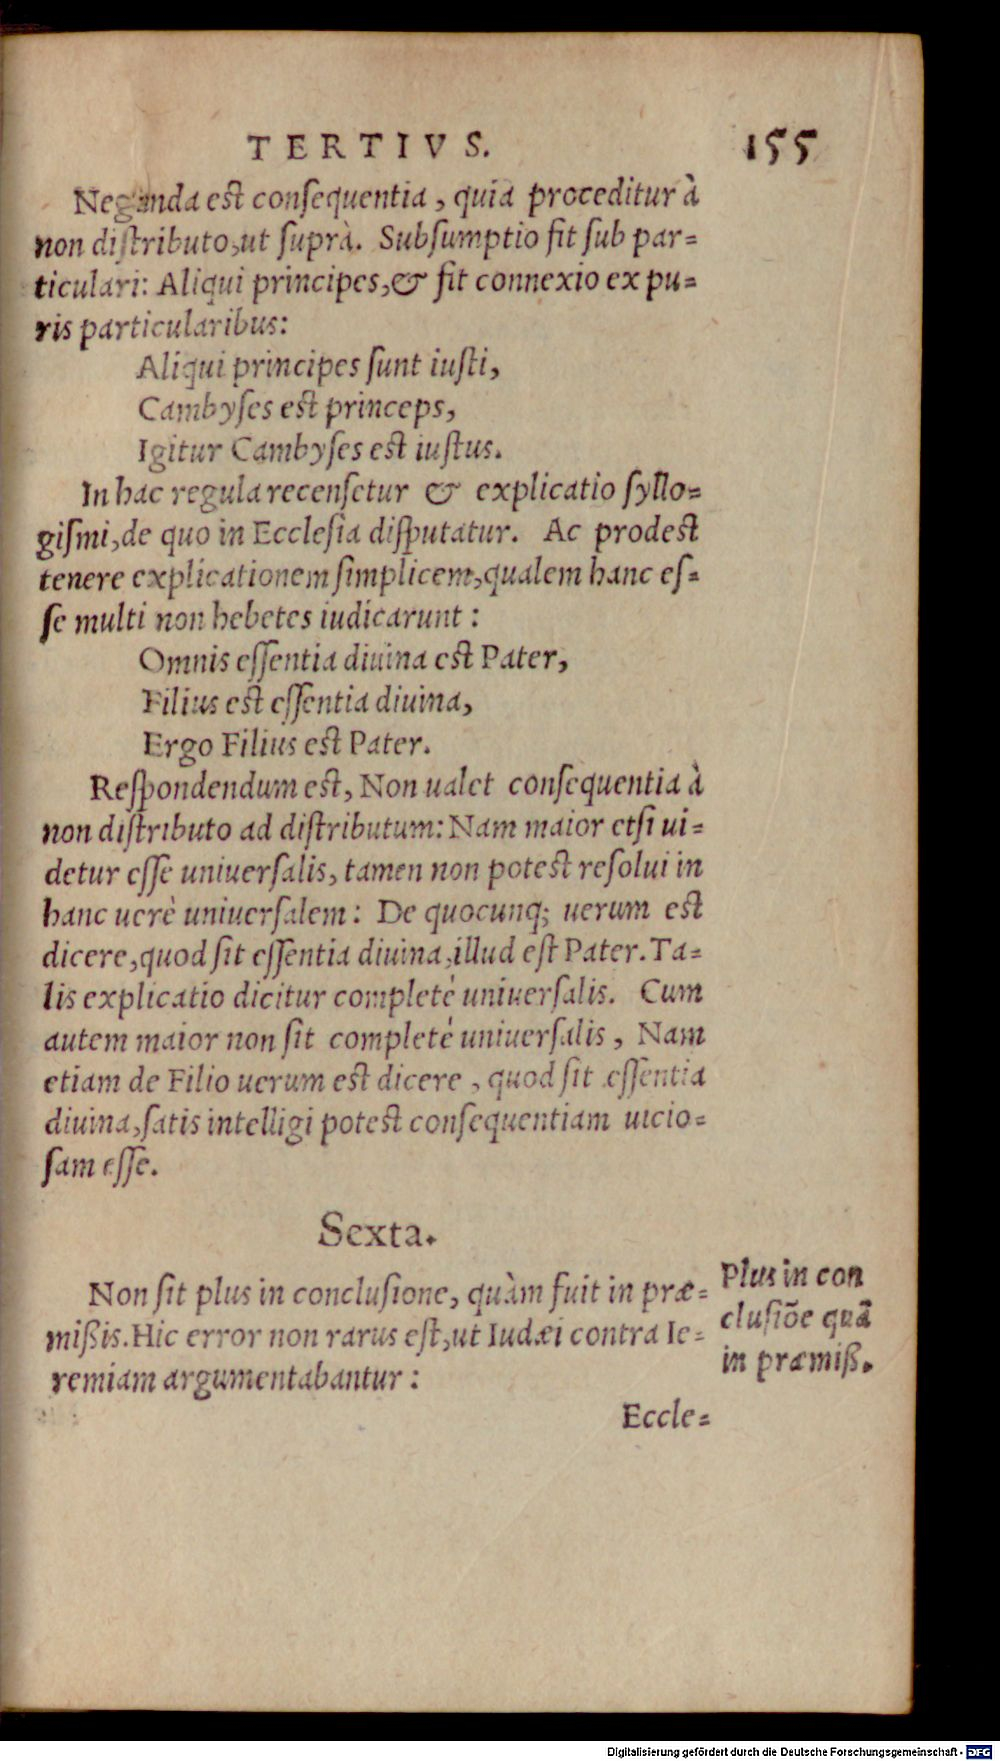 TERTIVS. 155
Neganda est consequentia, quia proceditur à
non distributo, ut suprà. Subsumptio fit sub par=
ticulari: Aliqui principes, & fit connexio ex pu=
ris particularibus:
Aliqui principes sunt iusti,
Cambyses est princeps,
Igitur Cambyses est iustus.
In hac regula recensetur & explicatio syllo=
gismi, de quo in Ecclesia disputatur. Ac prodest
tenere explicationem simplicem, qualem hanc es=
se multi non hebetes iudicarunt:
Omnis essentia diuina est Pater,
Filius est essentia diuina,
Ergo Filius est Pater.
Respondendum est, Non ualet consequentia à
non distributo ad distributum: Nam maior etsi ui=
detur esse uniuersalis, tamen non potest resolui in
hanc uerè uniuersalem: De quocunq; uerum est
dicere, quod sit essentia diuina, illud est Pater. Ta=
lis explicatio dicitur completè uniuersalis. Cum
autem maior non sit completè uniuersalis, Nam
etiam de Filio uerum est dicere, quod sit essentia
diuina, satis intelligi potest consequentiam uicio=
sam esse.
Sexta.
Non sit plus in conclusione, quàm fuit in præ=
mißis. Hic error non rarus est, ut Iudæi contra Ie=
remiam argumentabantur:
Plus in con
clusiõe quã
in præmiß.
Eccle=
Digitalisierung gefördert durch die Deutsche Forschungsgemeinschaft - DFG